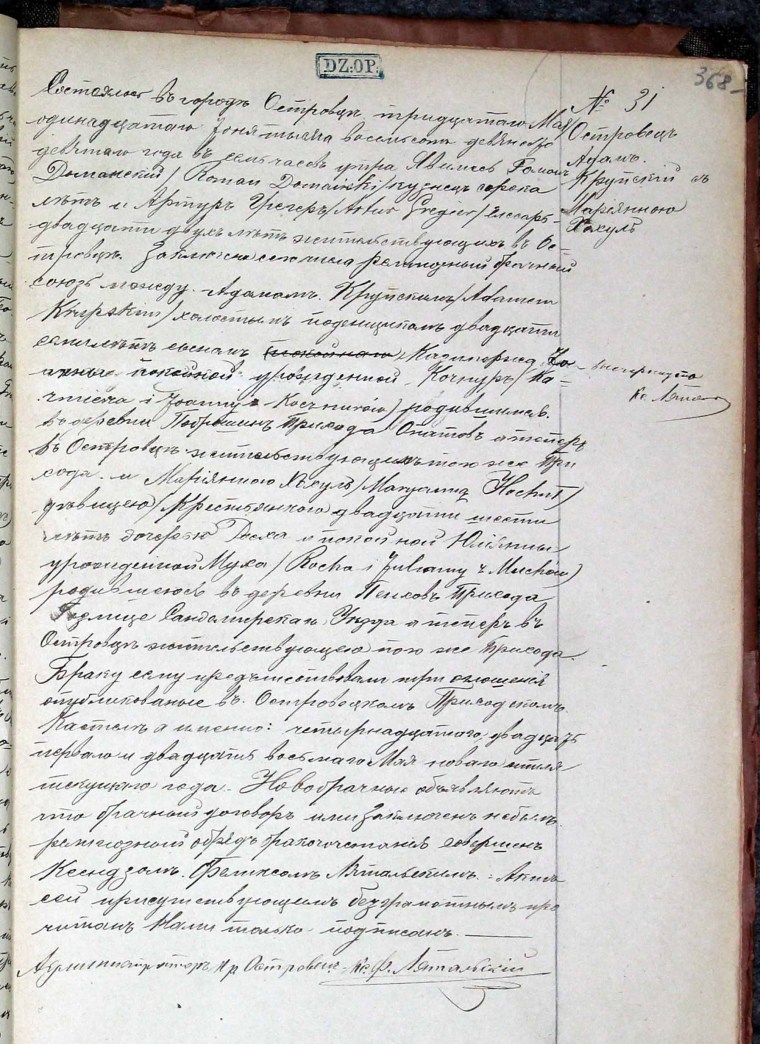 DZ:OP.
368
№ 31
Островецъ
Адамъ
Крупскій съ
Маріянною
Хохулъ
Состоялось въ городѣ Островцѣ тридцатаго Мая/
одинадцатаго Іюня тысяча восемьсотъ девяносто
девятаго года въ семь часовъ утра. Явились Романъ
Доманскій /Roman Domański/ кузнецъ сорока
лѣтъ и Артуръ Грегеръ /Artur Greger/
двадцати двухъ лѣтъ жительствующихъ въ Ос-
тровцѣ. Заключенъ сего числа религіозный брачный
союзъ между Адамомъ Крупскимъ /Adamem
Krupskim/ холостымъ поденщикомъ двадцати
семи лѣтъ сыномъ покойнаго Казимира
покойной урожденной /Ka-
źmierza i Joanny z / родившимся
въ деревнѣ Прихода Опатовъ а теперь
въ Островцѣ жительствующимъ тою же При
хода и Маріянною Хохулъ /Maryanną Hochuł/
дѣвицею /Крестьянкою двадцати шести
лѣтъ дочерью Роха и покойной Юліянны
урожденной Муха /Rocha i Julianny z Muchów/
родившеюся въ деревнѣ Пенховъ Прихода
Сандомирскаго Уѣзда а теперь въ
Островцѣ жительствующею тою же Прихода.
Браку сему предшествовали три оглашенія
опубликованые въ Островецкомъ Приходскомъ
Костелѣ а именно: четырнадцатаго двадцать
перваго и двадцать восьмаго Мая новаго стиля
текущаго года. Новобрачные объявляютъ
что брачный договоръ ими заключенъ небылъ.
религіозный обрядъ бракосочетанія совершенъ
Ксендзомъ Феликсомъ Актъ
сей присутствующимъ безграмотнымъ про
читанъ Нами только подписанъ.
Администраторъ пр. Островецъ Кс. Ф.